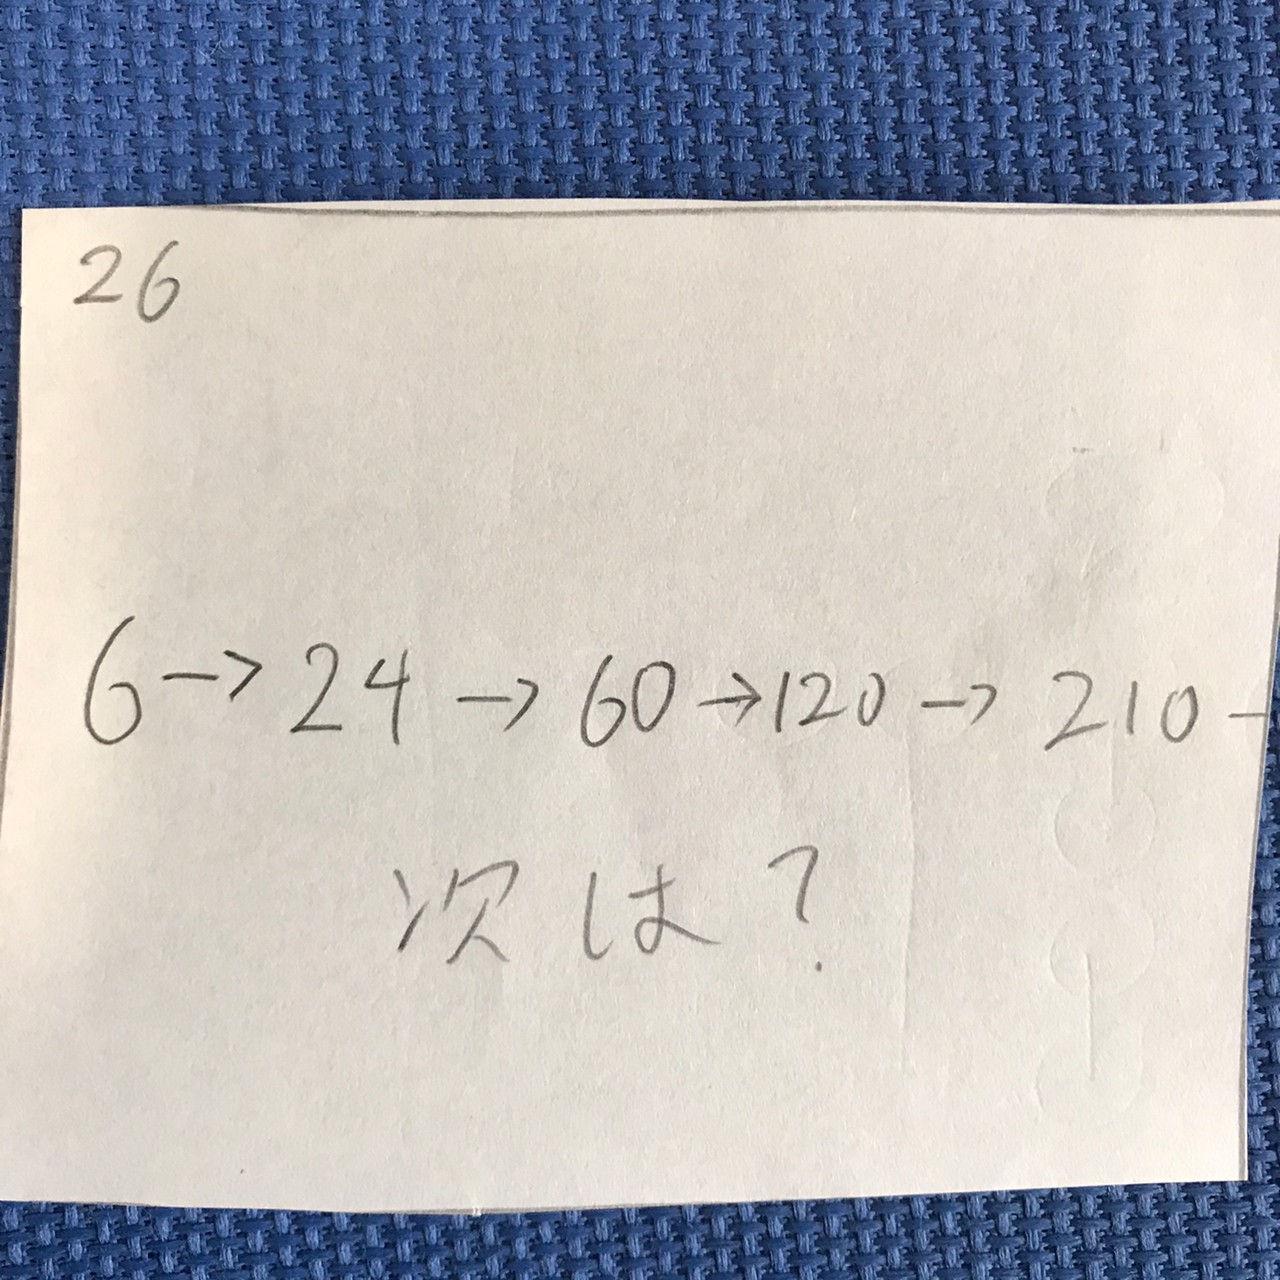 26
6→24→60→120→210-
次は?